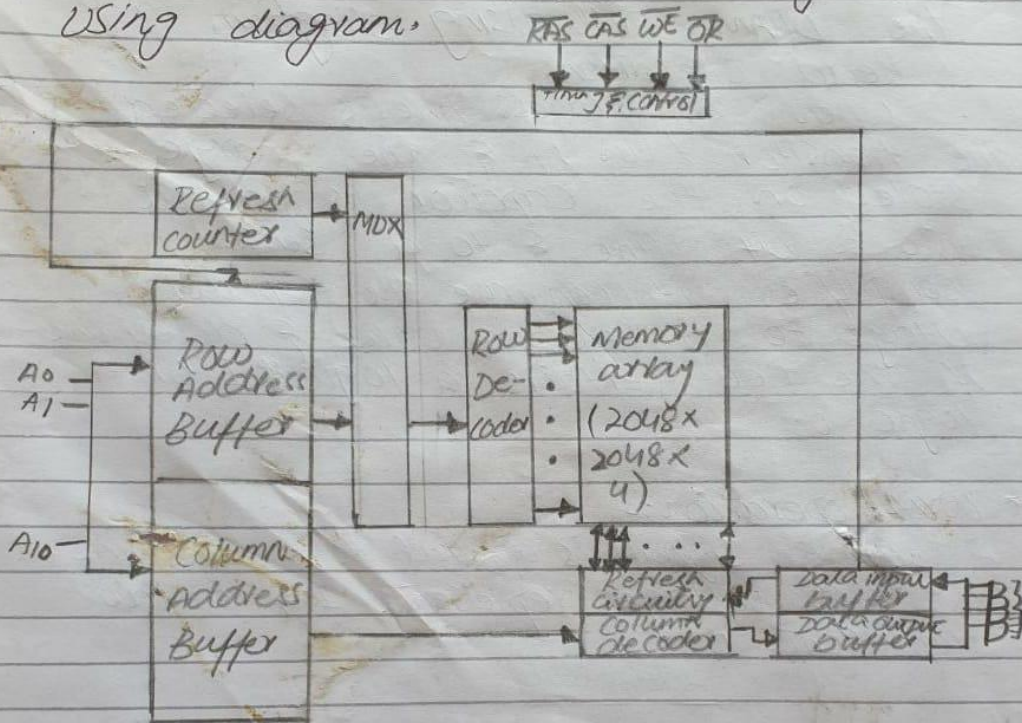 Using diagram.
RAS CAS WE OR
Timing & Control
Refresh
counter
MUX
Row
Address
Buffer
A0
A1
A10
Column
Address
Buffer
Row
De-
coder
Memory
array
(2048×
2048×
4)
Refresh
circuitry
Column
decoder
Data input
buffer
Data output
buffer